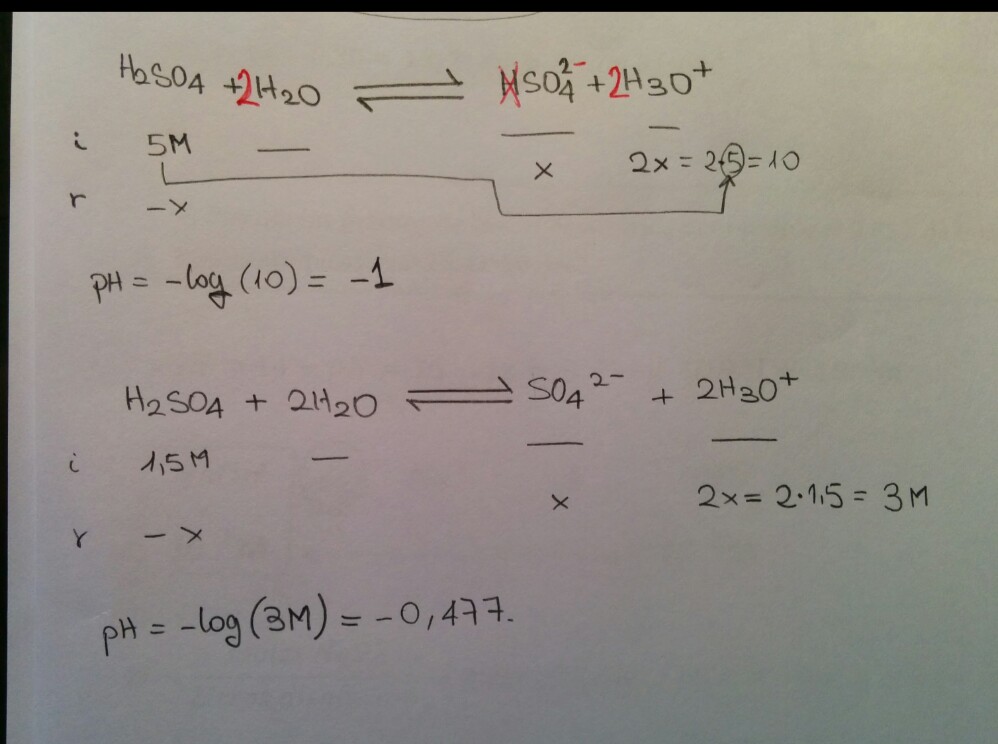 H₂SO₄ + 2H₂O ⇌ HSO₄²⁻ + 2H₃O⁺
i 5M — — —
x 2x = 2·5 = 10
r -x
pH = -log (10) = -1
H₂SO₄ + 2H₂O ⇌ SO₄²⁻ + 2H₃O⁺
i 1,5M — — —
x 2x = 2·1,5 = 3M
r -x
pH = -log(3M) = -0,477.